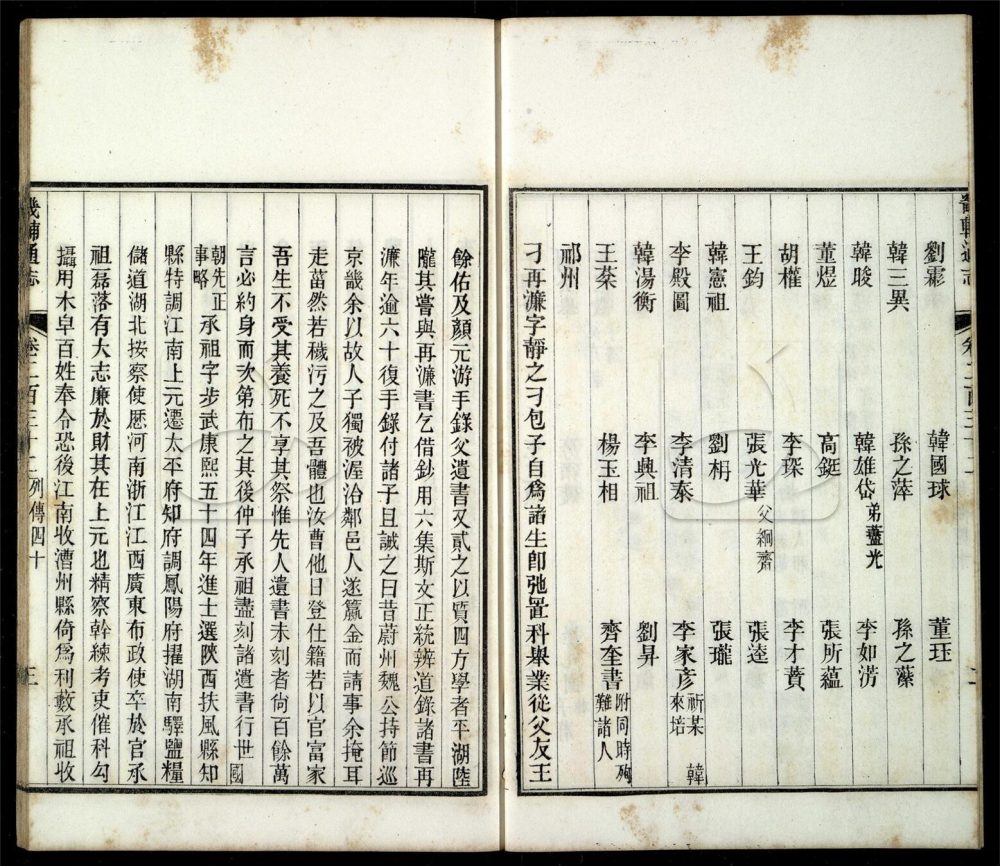 劉霦 韓國球 董玨
韓三異 孫之萍 孫之藻
韓晙 韓雄岱 弟藎光 李如涝
董煜 高鋌 張所蘊
胡權 李琛 李才蕡
王鈞 張光華 父綱齊 張逵
韓憲祖 劉枬 張瓏
李殿圖 李清泰 李家彥 祈某 韓來培
韓湯衡 李興祖 劉昇
王棻 楊玉相 齊奎書 附同時殉難諸人
祁州
刁再濂字靜之刁包子自爲諸生卽弛置科舉業從父友王
餘佑及顏元游手錄父遺書又貳之以質四方學者平湖陸
隴其嘗與再濂書乞借鈔用六集斯文正統辨道錄諸書再
濂年逾六十復手錄付諸子且誡之曰昔蔚州魏公持節巡
京畿余以故人子獨被渥洽鄰邑人遂籯金而請事余掩耳
走蓾然若穢污之及吾體也汝曹他日登仕籍若以官富家
吾生不受其養死不享其祭惟先人遺書未刻者尙百餘萬
言必約身而次第布之其後仲子承祖盡刻諸遺書行世 國
朝先正事略 承祖字步武康熙五十四年進士選陝西扶風縣知
縣特調江南上元遷太平府知府調鳳陽府擢湖南驛鹽糧
儲道湖北按察使厯河南浙江江西廣東布政使卒於官承
祖磊落有大志廉於財其在上元也精察幹練考吏催科勾
攝用木皁百姓奉令恐後江南收漕州縣倚爲利藪承祖收
畿輔通志 卷二百三十二 列傳四十